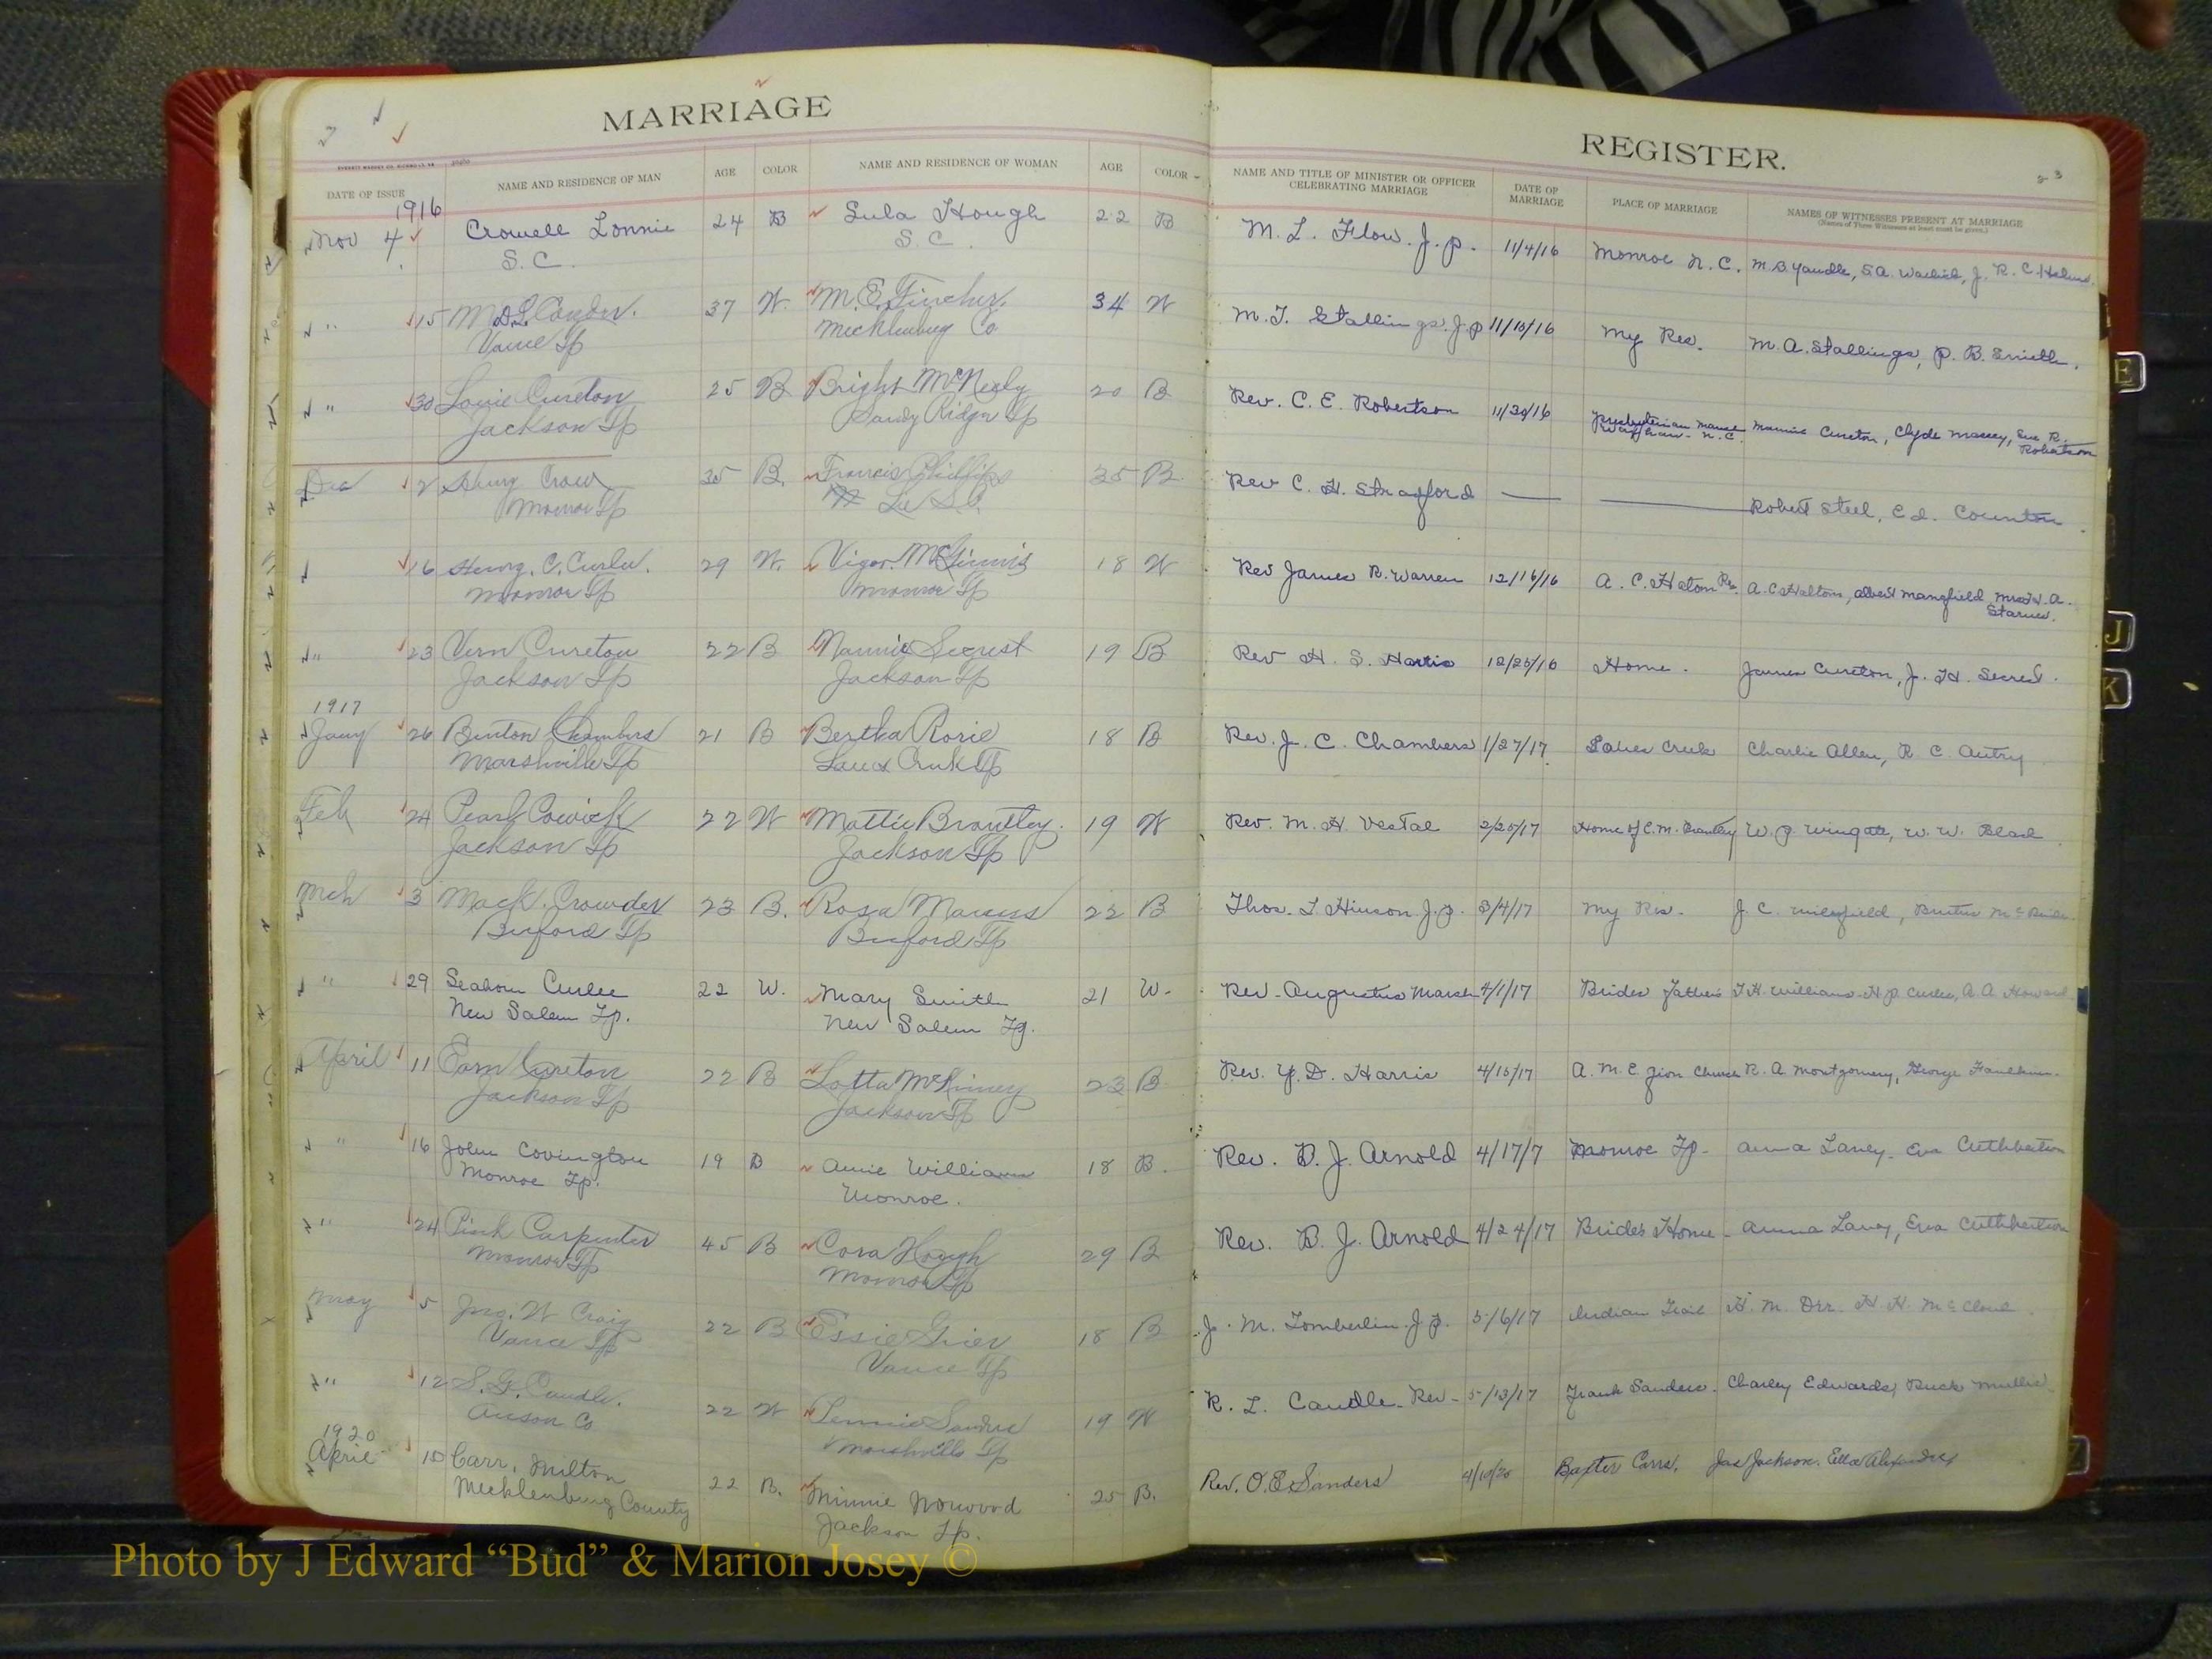 MARRIAGE
REGISTER.
DATE OF ISSUE
NAME AND RESIDENCE OF MAN
AGE
COLOR
NAME AND RESIDENCE OF WOMAN
AGE
COLOR
NAME AND TITLE OF MINISTER OR OFFICER
CELEBRATING MARRIAGE
DATE OF
MARRIAGE
PLACE OF MARRIAGE
NAMES OF WITNESSES PRESENT AT MARRIAGE
(Names of Three Witnesses at least must be given.)
1916
Nov 4 Crowell Lonnie 24 B Lula Hough 22 B M. L. Flow. J. P. 11/4/16 Monroe N. C. M. B. Yandle, S. A. J. R. C. Helms.
S. C. S. C.
" 15 37 W. M. E. Fincher. 34 W M. T. Stallings. J. P 11/15/16 My Res. M. A. Stallings, P. B. Smith.
Vance Tp Mecklenburg Co
" 30 Louie Cureton 25 B Bright McNeely 20 B Rev. C. E. Robertson 11/30/16 Presbyterian Manse Mamie Cureton, Clyde Massey, Sue R.
Jackson Tp Sandy Ridge Tp Waxhaw - N. C. Robertson
Dec 2 Henry Crow 35 B. Francis Phillips 35 B. Rev C. H. Robert Steel, C. D.
Monroe Tp
16 Henry. C. Curlee. 29 W. 18 W Rev James R. Warren 12/16/16 A. C. Helton Albert Mangfield Mrs H. A.
Monroe Tp Monroe Tp Starnes.
" 23 Vern Cureton 22 B Nannie Secrest 19 B Rev H. S. 12/25/16 Home. James Cureton, J. H. Secrest.
Jackson Tp Jackson Tp
1917
Jany 26 Benton Chambers 21 B Bertha Rorie 18 B Rev. J. C. Chambers 1/27/17. Lanes Creek Charlie Allen, R. C. Autry
Marshville Tp Lanes Creek Tp
Feb 24 Pearl 22 W Mattie Brantley. 19 W Rev. M. H. Vestal 2/25/17 Home of C. M. Brantley W. P. Wingate, W. W.
Jackson Tp Jackson Tp
Mch 3 Mack. Crowder 23 B. Rosa Massey 22 B Thos. L Hinson. J. P. 3/4/17 My Res. J. C.
Buford Tp Buford Tp
" 29 Seaborn Curlee 22 W. Mary Smith 21 W. Rev. Augustus Marsh 4/1/17 Brides Fathers T. H. Williams. H. P. Curlee, A. A. Howard
New Salem Tp. New Salem Tp.
April 11 Cureton 22 B Lotta McKinney 23 B Rev. Y. D. Harris 4/15/17 A. M. E. Zion Church R. A. Montgomery, George Faulkner.
Jackson Tp Jackson Tp
" 16 John Covington 19 B Annie Williams 18 B. Rev. B. J. Arnold 4/17/7 Monroe Tp. Anna Laney - Eva Cuthbertson
Monroe Tp. Monroe.
" 24 Pink Carpenter 45 B Cora Hough 29 B Rev. B. J. Arnold 4/24/17 Brides Home - Anna Laney, Eva Cuthbertson
Monroe Tp Monroe Tp
May 5 Jno. W Craig 22 B Essie Grier 18 B J. M. Tomberlin. J. P. 5/6/17 Indian Trail H. M. Orr. H. H. McCloud.
Vance Tp Vance Tp
" 12 S. G. Caudle. 22 W Lennie Sanders 19 W R. L. Caudle - Rev - 5/13/17 Frank Sanders. Charley Edwards, Buck Mullis
Anson Co Marshville Tp
1920
April 10 Carr, Milton 22 B. Minnie Norwood 25 B. Rev. O. E. Sanders 4/10/20 Baxter Carrs. Jas Jackson. Ella Alexander
Mecklenburg County Jackson Tp.
E
J
K
Z
Photo by J Edward “Bud” & Marion Josey ©